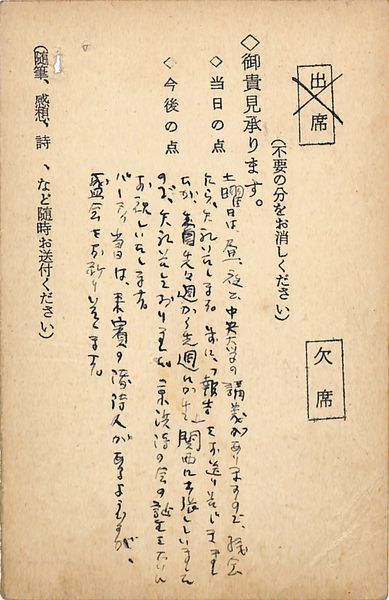 出席
(不要の分をお消しください)
欠席
◇御貴見承ります。
◇当日の点
◇今後の点
土曜日は、昼、夜と、中央大学の講義がありますので、総会
たち、失礼いたします。先に、「報告」をお送りいたします
が、先々週から先週にかけて関西に出張していました
ので、失礼いたしておりました。東洗詩の会の誕生を心から
お祝いいたします。
パーティ当日は、来賓の招待人があるようですが、
盛会をお祈りいたします。
(随筆、感想、詩、など随時お送付ください)